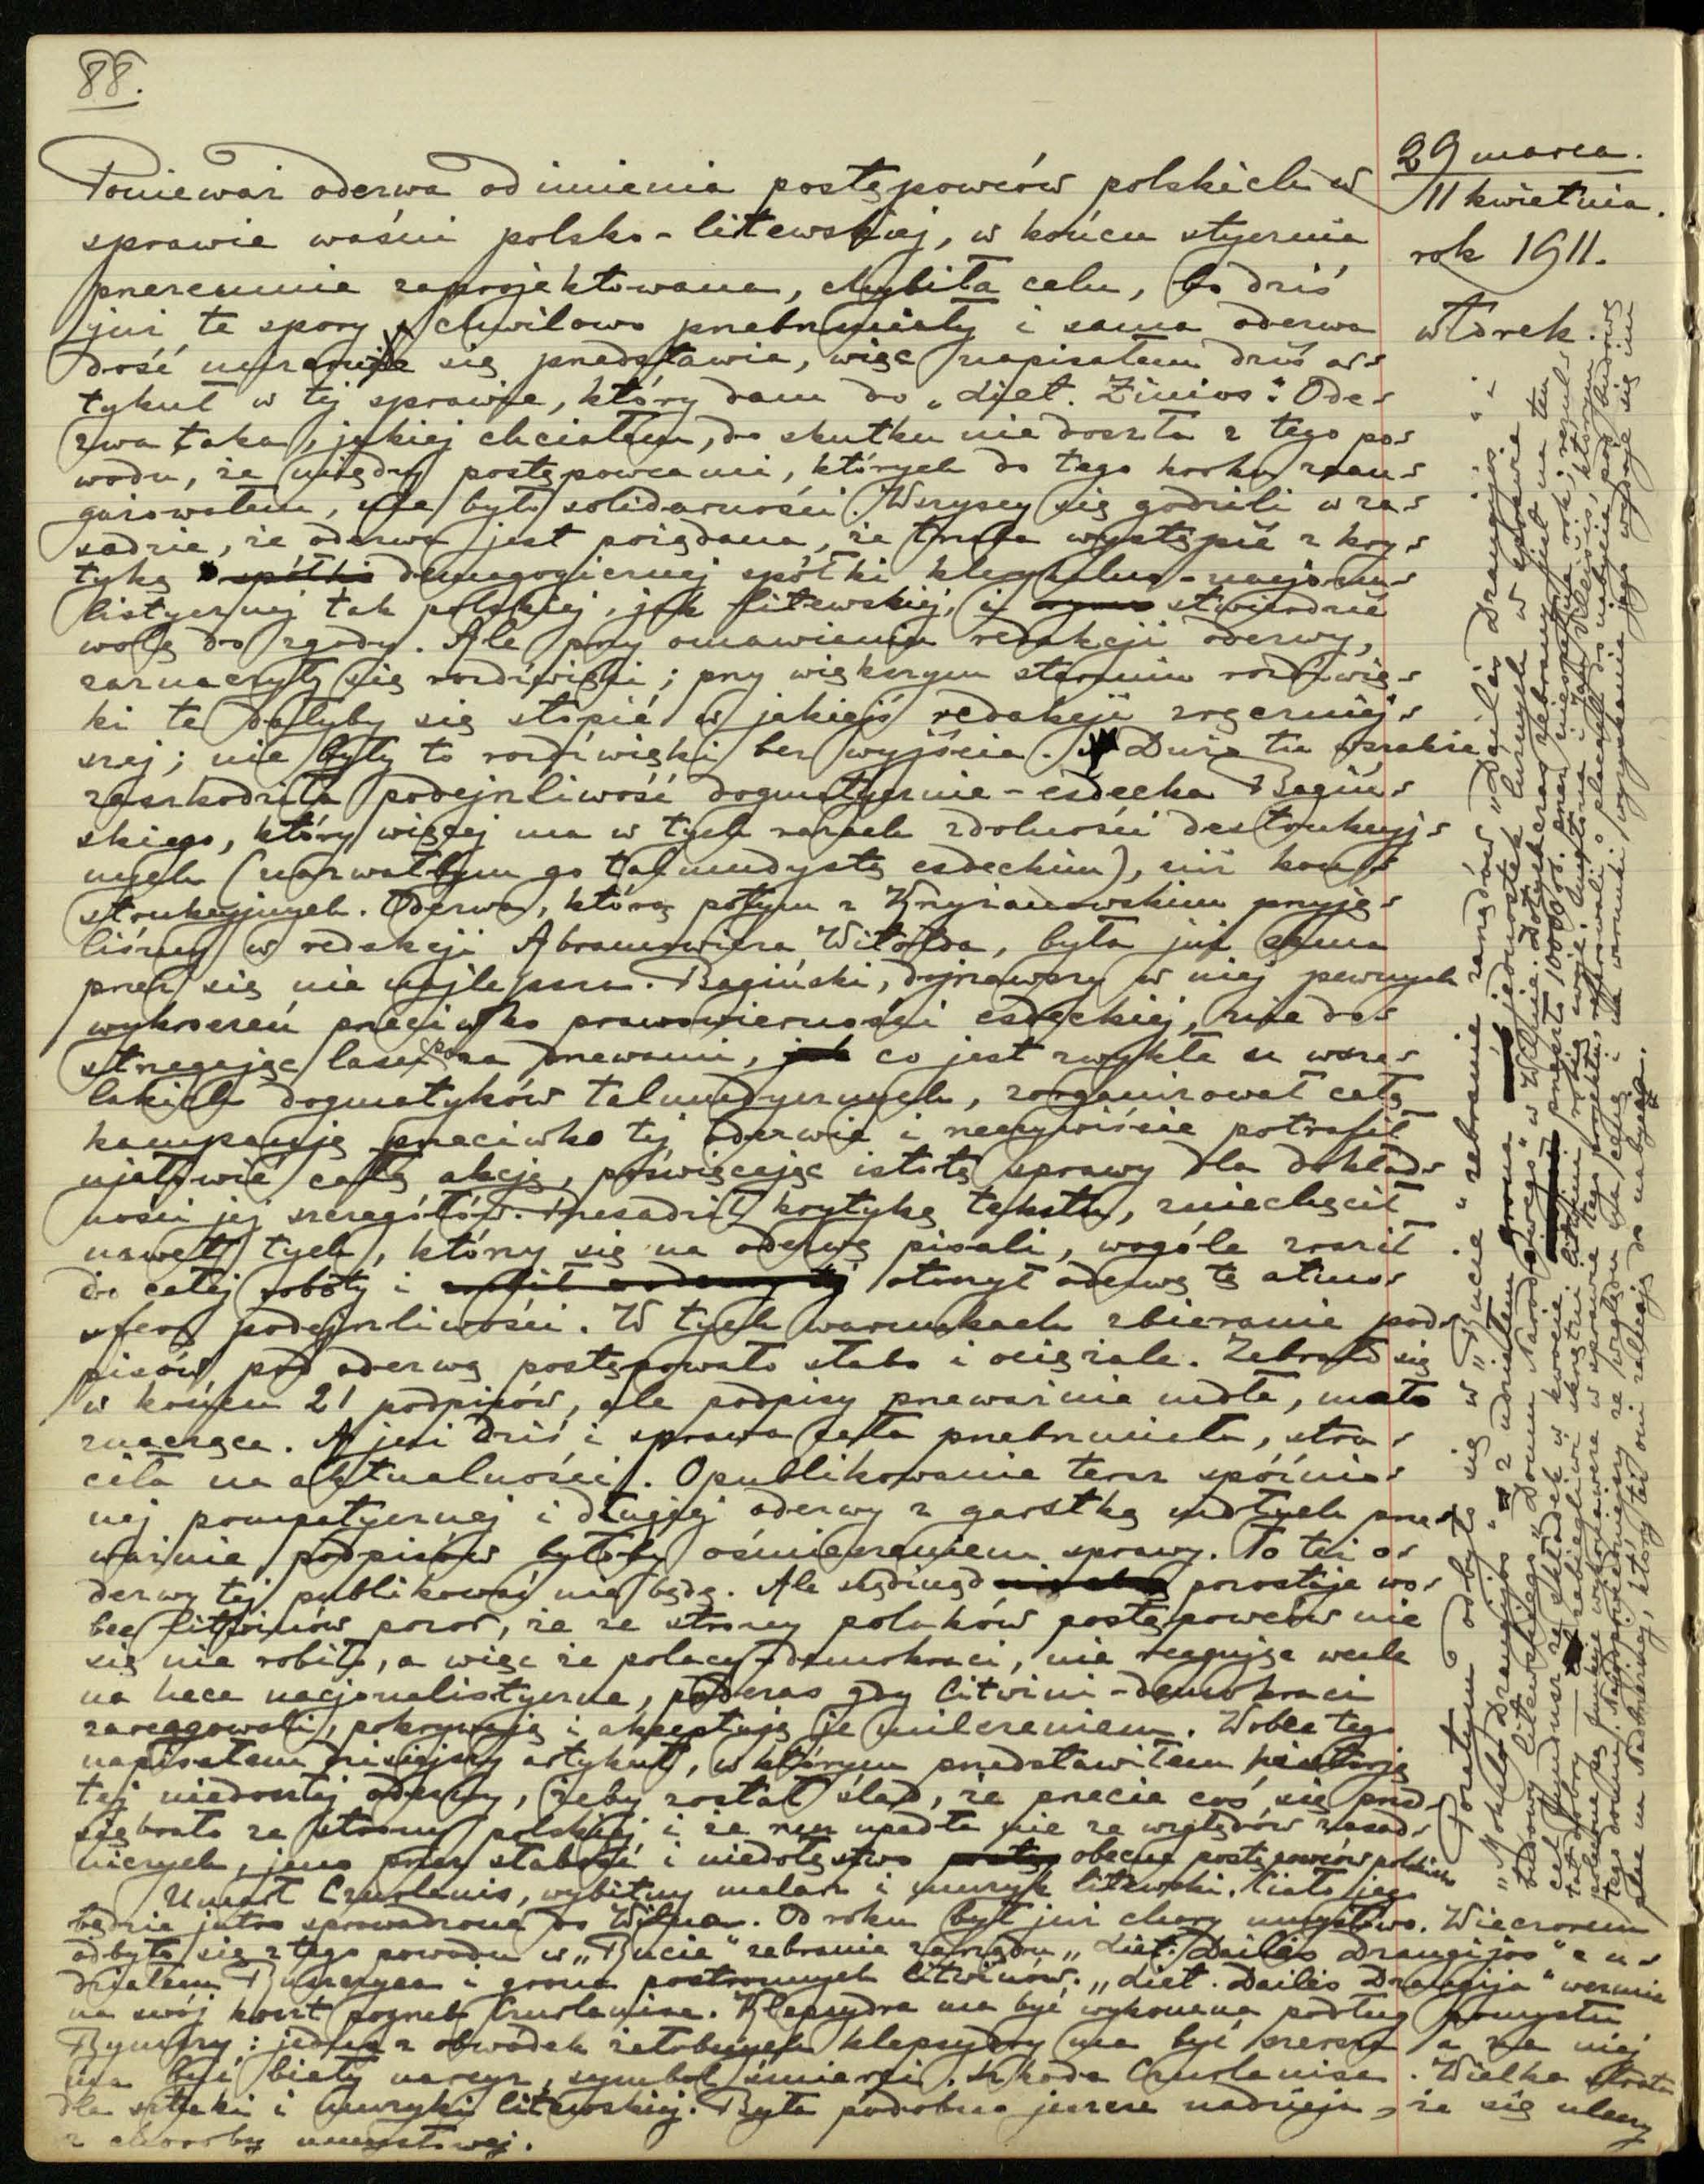 88.
29 marca.
11 kwietnia.
rok 1911.
wtorek.
Ponieważ odezwa od imienia postępowców polskich w
sprawie waśni polsko-litewskiej, w końcu stycznia
przezemnie zaprojektowana, chybiła celu, bo dziś
już te spory chwilowo przebrzmiały i sama odezwa
dość mizernie się przedstawia, więc napisałem dziś ar-
tykuł w tej sprawie, który dam do „Liet. Žinios". Ode-
zwa taka, jakiej chciałem, do skutku nie doszła z tego po-
wodu, że między postępowcami, których do tego kroku zaan-
gażowałem, nie było solidarności. Wszyscy się godzili w za-
sadzie, że odezwa jest pożądana, że trzeba wystąpić z kry-
tyką spółki demagogicznej spółki klerykalno-nacjona-
listycznej tak polskiej, jak litewskiej, i stwierdzić
wolę do zgody. Ale przy omawianiu redakcji odezwy,
zaznaczyły się rozdźwięki; przy większym staraniu rozdźwię-
ki te dałyby się stopić w jakiejś redakcji zręczniej-
szej; nie były to rozdźwięki bez wyjścia. Dużo tu wszakże
zaszkodziła podejrzliwość dogmatycznie-esdecka Bagiń-
skiego, który więcej ma w tych razach zdolności destrukcyj-
nych (nazwałbym go talmudystą esdeckim), niż kon-
strukcyjnych. Odezwa, którą potym z Krzyżanowskim przyję-
liśmy w redakcji Abramowicza Witolda, była już sama
przez się nie najlepsza. Bagiński, dojrzawszy w niej pewnych
wykroczeń przeciwko prawowierności esdeckiej, nie do-
strzegając lasu poza drzewami, jak co jest zwykłe u wsze-
lakich dogmatyków talmudycznych, zorganizował całą
kampanję przeciwko tej odezwie i rzeczywiście potrafił
ujałowić całą akcję, poświęcając istotę sprawy dla dokład-
ności jej szczegółów. Przesadził krytykę tekstu, zniechęcił
nawet tych, którzy się na odezwę pisali, wogóle zraził
do całej roboty i otoczył odezwę tę atmo-
sferą podejrzliwości. W tych warunkach zbieranie pod-
pisów pod odezwą postępowało słabo i ociężale. Zebrało się
w końcu 21 podpisów, ale podpisy przeważnie mdłe, mało
znaczące. A już dziś i sprawa cała przebrzmiała, stra-
ciła na aktualności. Opublikowanie teraz spóźnio-
nej pompatycznej i długiej odezwy z garstką mdłych prze-
ważnie podpisów byłoby ośmieszeniem sprawy. To też o-
dezwy tej publikować nie będę. Ale skądinąd pozostaje wo-
bec litwinów pozór, że ze strony polaków postępowców nic
się nie robiło, a więc że polacy-demokraci, nie reagując wcale
na hece nacjonalistyczne, podczas gdy litwini-demokraci
zareagowali, pokrywają i akceptują je milczeniem. Wobec tego
napisałem dzisiejszy artykuł, w którym przedstawiłem historję
tej niedoszłej odezwy, żeby został ślad, że przecie coś się przed-
siębrało ze strony polskiej i że rzecz upadła nie ze względów zasad-
niczych, jeno przez słabość i niedołęstwo obecne postępowców polskich.
Umarł Czurlanis, wybitny malarz i muzyk litewski. Ciało jego
będzie jutro sprowadzone do Wilna. Od roku był już chory umysłowo. Wieczorem
odbyło się z tego powodu w „Rucie" zebranie zarządu „Liet. Dailės Draugijos" z u-
działem i grona postronnych litwinów. „Liet. Dailės Draugija" weźmie
na swój koszt pogrzeb Czurlanisa. Klepsydra ma być wykonana podług pomysłu
Rymszy: jedna z obwódek żałobnych klepsydry ma być szersza a na niej
ma być biały narcyz, symbol śmierci. Szkoda Czurlanisa. Wielka strata
dla sztuki i muzyki litewskiej. Była podobno jeszcze nadzieja, że się uleczy
z choroby umysłowej.
Pozatym odbyło się w „Rucie" zebranie zarządów „Dailės Draugijos" i
„Mokslo Draugijos" z udziałem grona jednostek luźnych w sprawie
budowy litewskiego „Domu Narodowego" w Wilnie. Dotychczas zebrany jest na ten
cel fundusz ze składek w kwocie przeszło 10000 rb. przez niespełna rok; rezul-
tat dobry — zabiegliwi skrzętni litwini robią swoje.